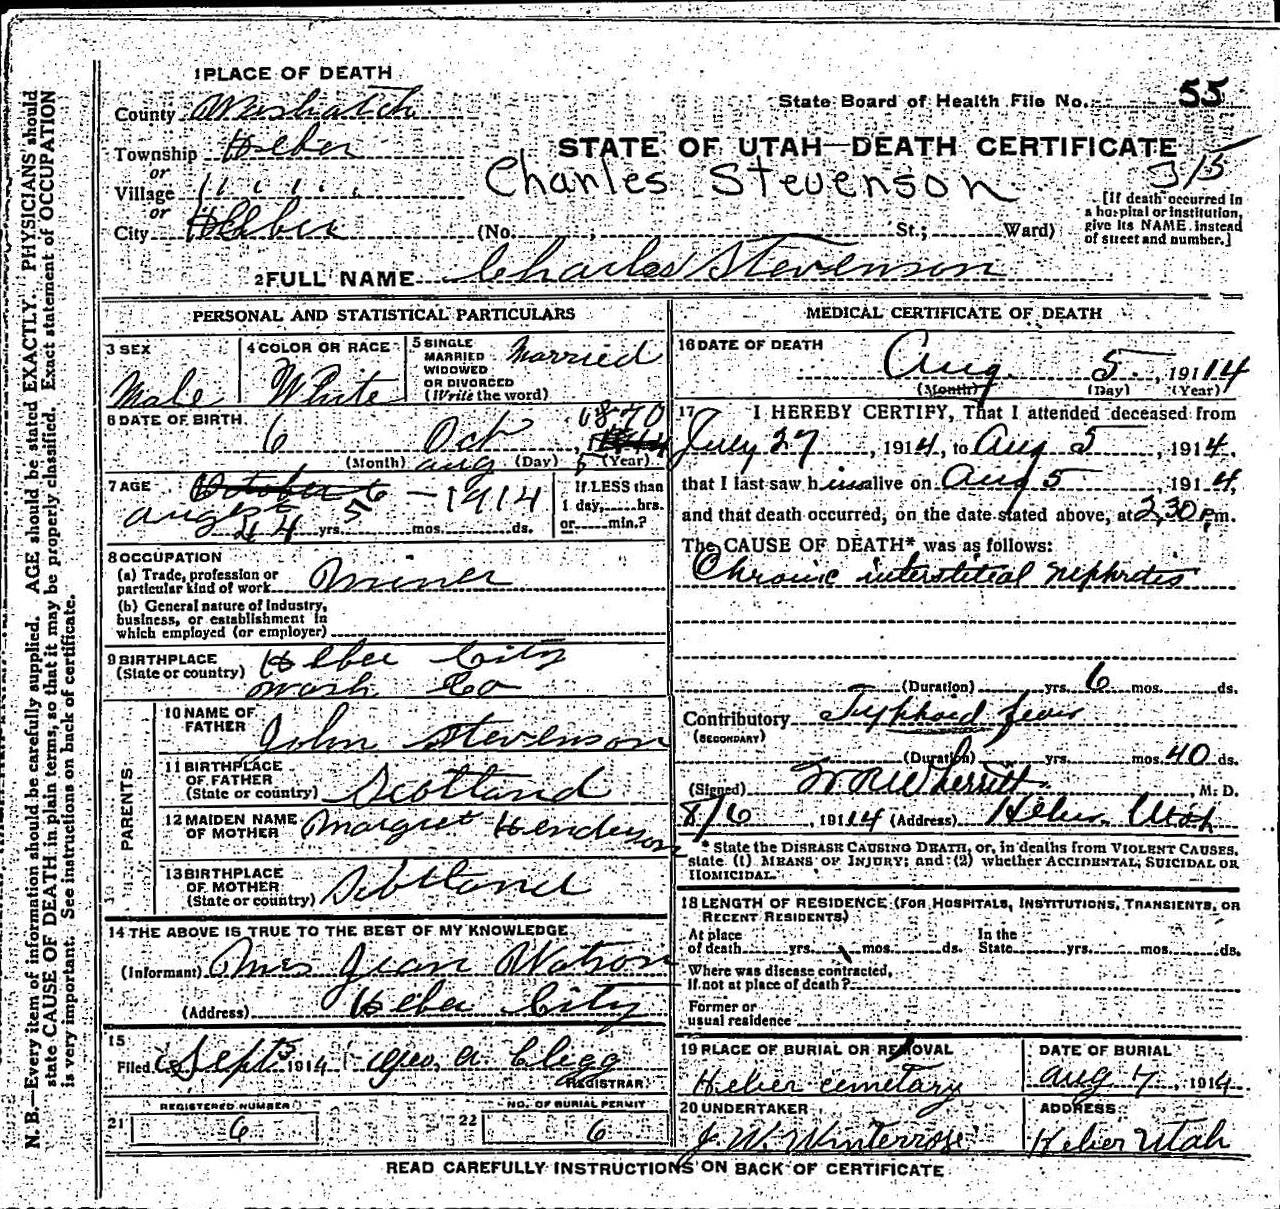 1 PLACE OF DEATH
County Washatch
State Board of Health File No. 55
Township Heber
or
Village
or
City Heber
STATE OF UTAH—DEATH CERTIFICATE
Charles Stevenson
[If death occurred in a hospital or institution, give its NAME instead of street and number.]
(No. , St.; Ward)
2 FULL NAME Charles Stevenson
PERSONAL AND STATISTICAL PARTICULARS
3 SEX Male
4 COLOR OR RACE White
5 SINGLE MARRIED WIDOWED OR DIVORCED (Write the word) Married
6 DATE OF BIRTH
6 Oct , 1870
(Month) (Day) (Year)
aug 5
7 AGE October 6 — 1914
august
44 yrs. mos. ds.
If LESS than 1 day, hrs. or min.?
8 OCCUPATION
(a) Trade, profession or particular kind of work Miner
(b) General nature of Industry, business, or establishment in which employed (or employer)
9 BIRTHPLACE (State or country) Heber City
Wash Co
PARENTS
10 NAME OF FATHER John Stevenson
11 BIRTHPLACE OF FATHER (State or country) Scottand
12 MAIDEN NAME OF MOTHER Margret Henderson
13 BIRTHPLACE OF MOTHER (State or country) Scottand
14 THE ABOVE IS TRUE TO THE BEST OF MY KNOWLEDGE
(Informant) Mrs Jean Watson
(Address) Heber City
15
Filed Sept 3 1914 Geo. A. Clegg
REGISTRAR
21 REGISTERED NUMBER 6
22 NO. OF BURIAL PERMIT 6
MEDICAL CERTIFICATE OF DEATH
16 DATE OF DEATH
Aug. 5 , 1914
(Month) (Day) (Year)
17 I HEREBY CERTIFY, That I attended deceased from
July 27 , 1914, to Aug 5 , 1914,
that I last saw him alive on Aug 5 1914,
and that death occurred, on the date stated above, at 2,30 P.m.
The CAUSE OF DEATH* was as follows:
Chronic interstitial nephrites
(Duration) yrs. 6 mos. ds.
Contributory Typhoid fever
(SECONDARY)
(Duration) yrs. mos. 40 ds.
(Signed) W R Wherritt , M. D.
8/6 , 1914 (Address) Heber Utah
* State the DISEASE CAUSING DEATH, or, in deaths from VIOLENT CAUSES, state (1) MEANS OF INJURY; and (2) whether ACCIDENTAL, SUICIDAL OR HOMICIDAL.
18 LENGTH OF RESIDENCE (FOR HOSPITALS, INSTITUTIONS, TRANSIENTS, OR RECENT RESIDENTS)
At place of death yrs. mos. ds. In the State yrs. mos. ds.
Where was disease contracted, If not at place of death?
Former or usual residence
19 PLACE OF BURIAL OR REMOVAL
Heber cemetary
DATE OF BURIAL
aug 7 , 1914
20 UNDERTAKER
J. W. Winterrose
ADDRESS
Heber Utah
READ CAREFULLY INSTRUCTIONS ON BACK OF CERTIFICATE
N. B.—Every item of information should be carefully supplied. AGE should be stated EXACTLY. PHYSICIANS should
state CAUSE OF DEATH in plain terms, so that it may be properly classified. Exact statement of OCCUPATION
is very important. See instructions on back of certificate.